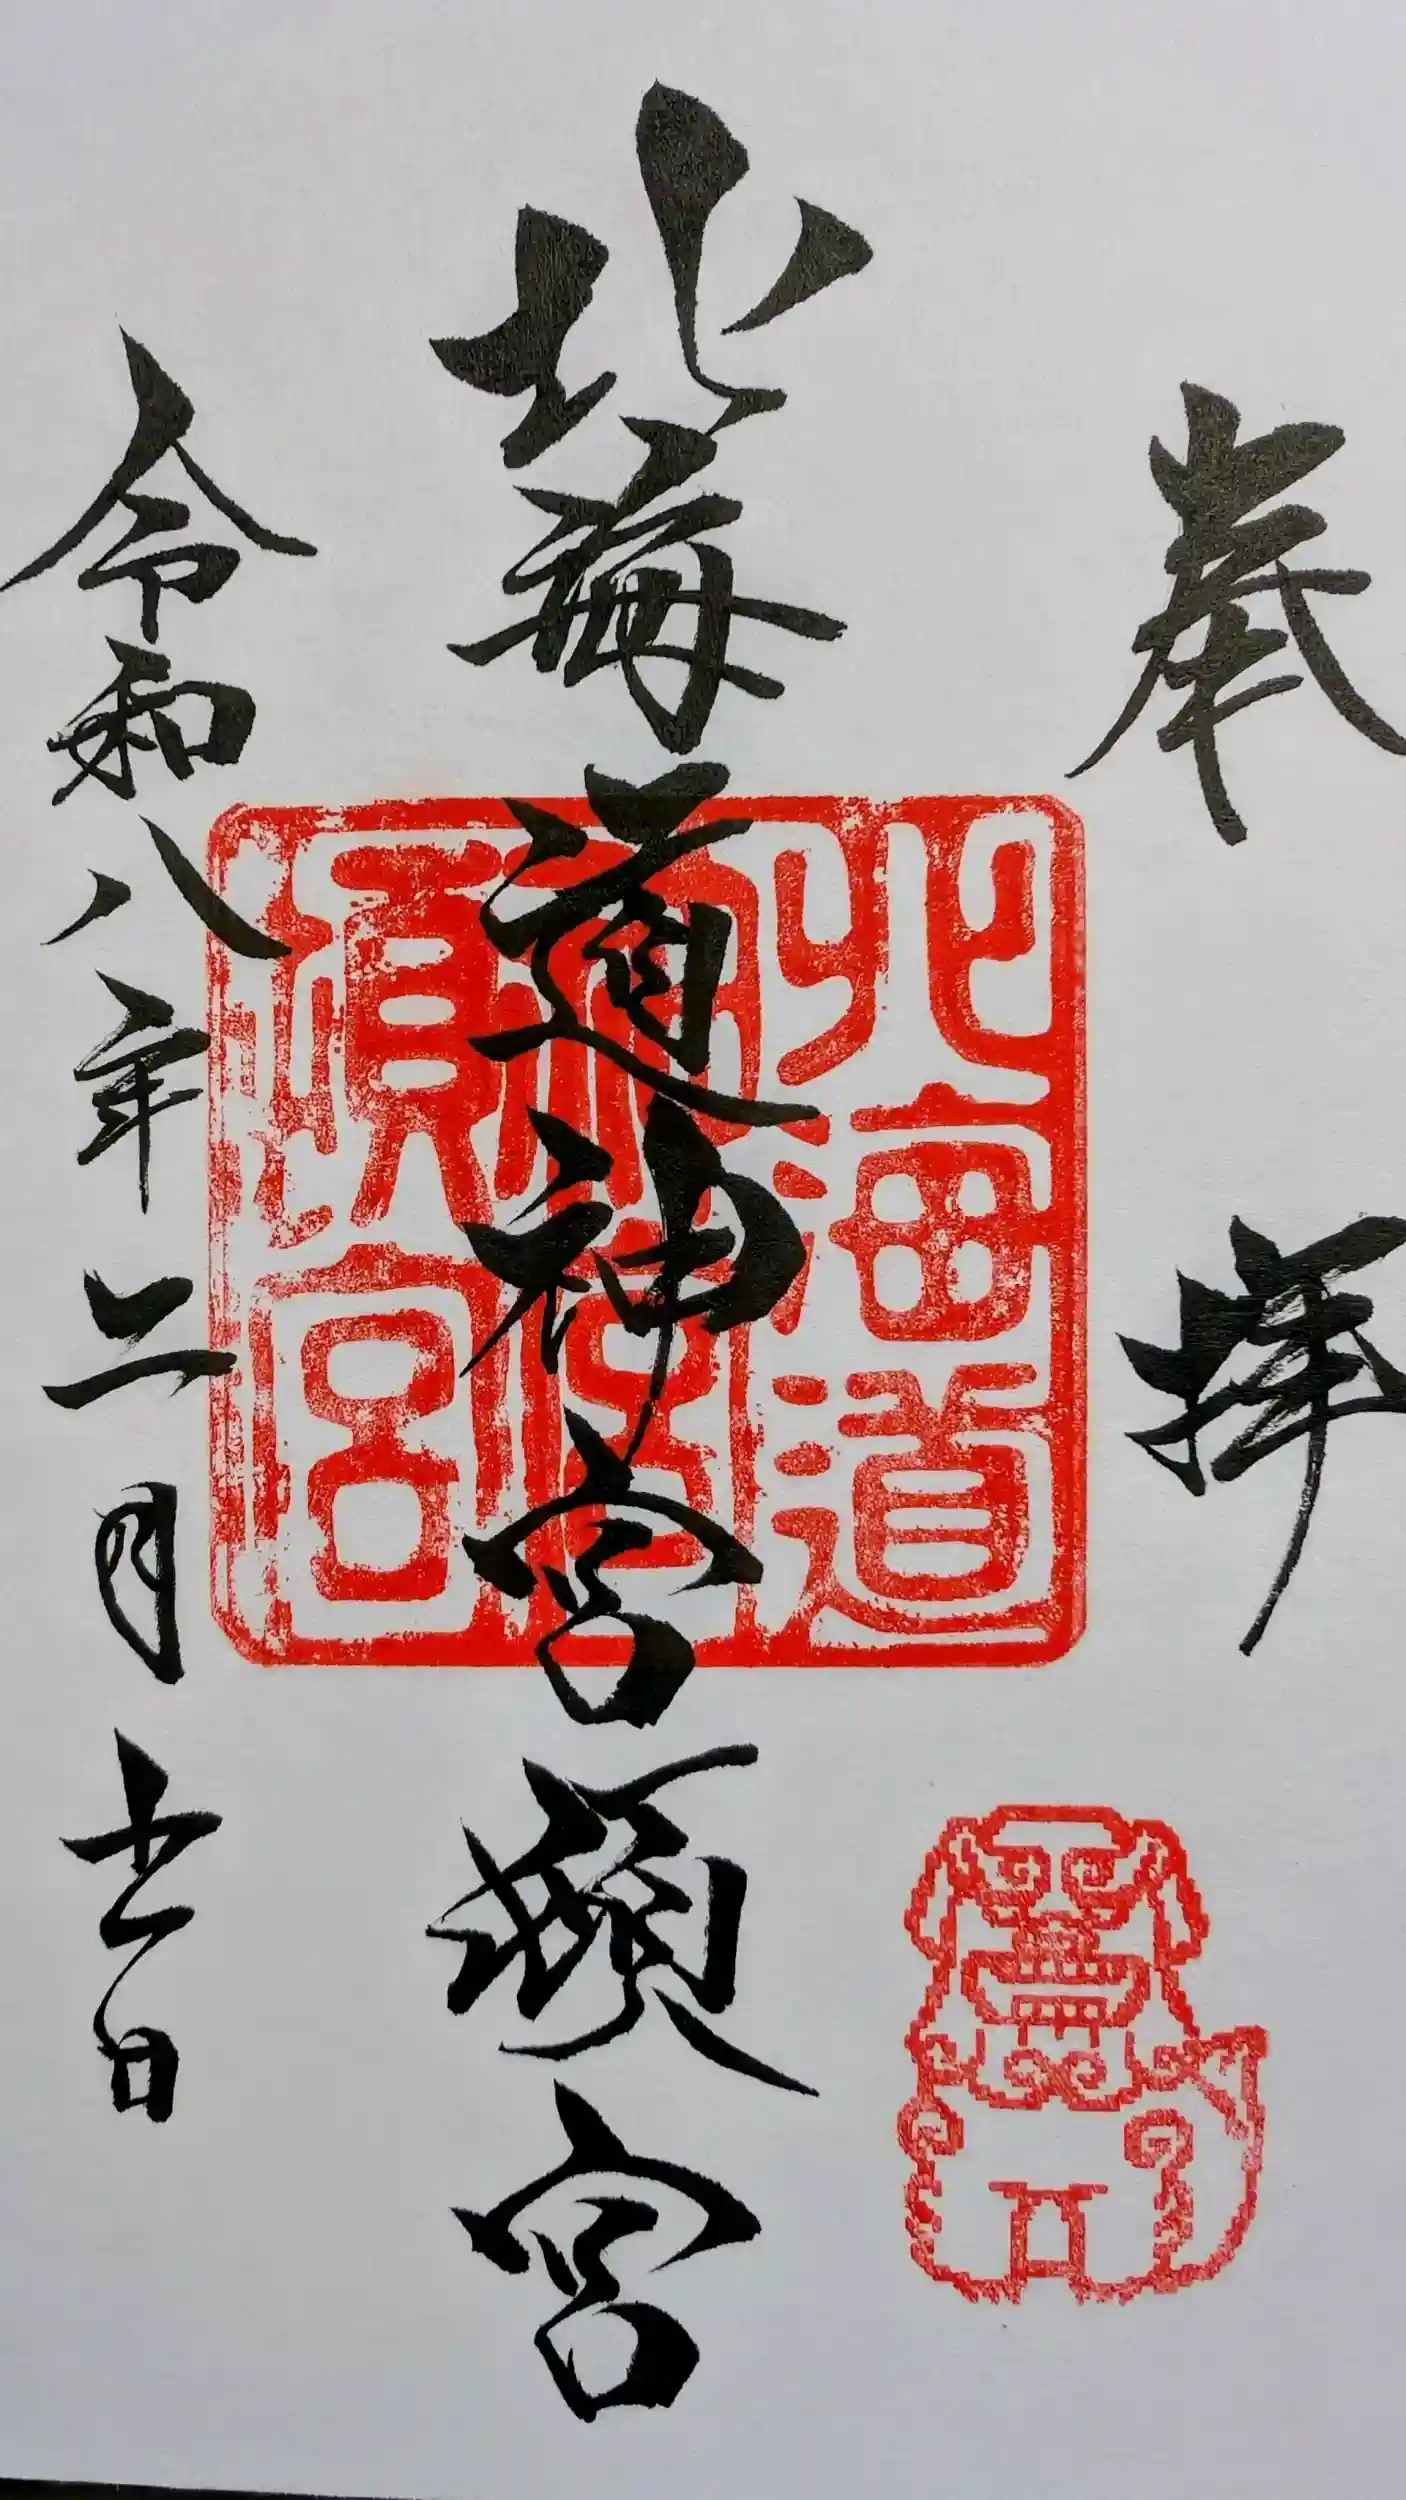 奉拝
北海道神宮頓宮
北海道
神宮
頓宮
令和八年二月十一日